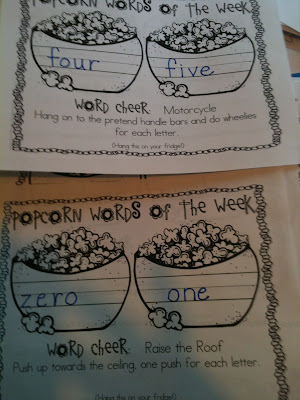 POPCORN WORDS of the Week
four five
WORD CHEER: Motorcycle
Hang on to the pretend handle bars and do wheelies
for each letter.
(Hang this on your fridge!)
POPCORN WORDS of the Week
zero one
WORD CHEER: Raise the Roof
Push up towards the ceiling, one push for each letter.
(Hang this on your fridge!)